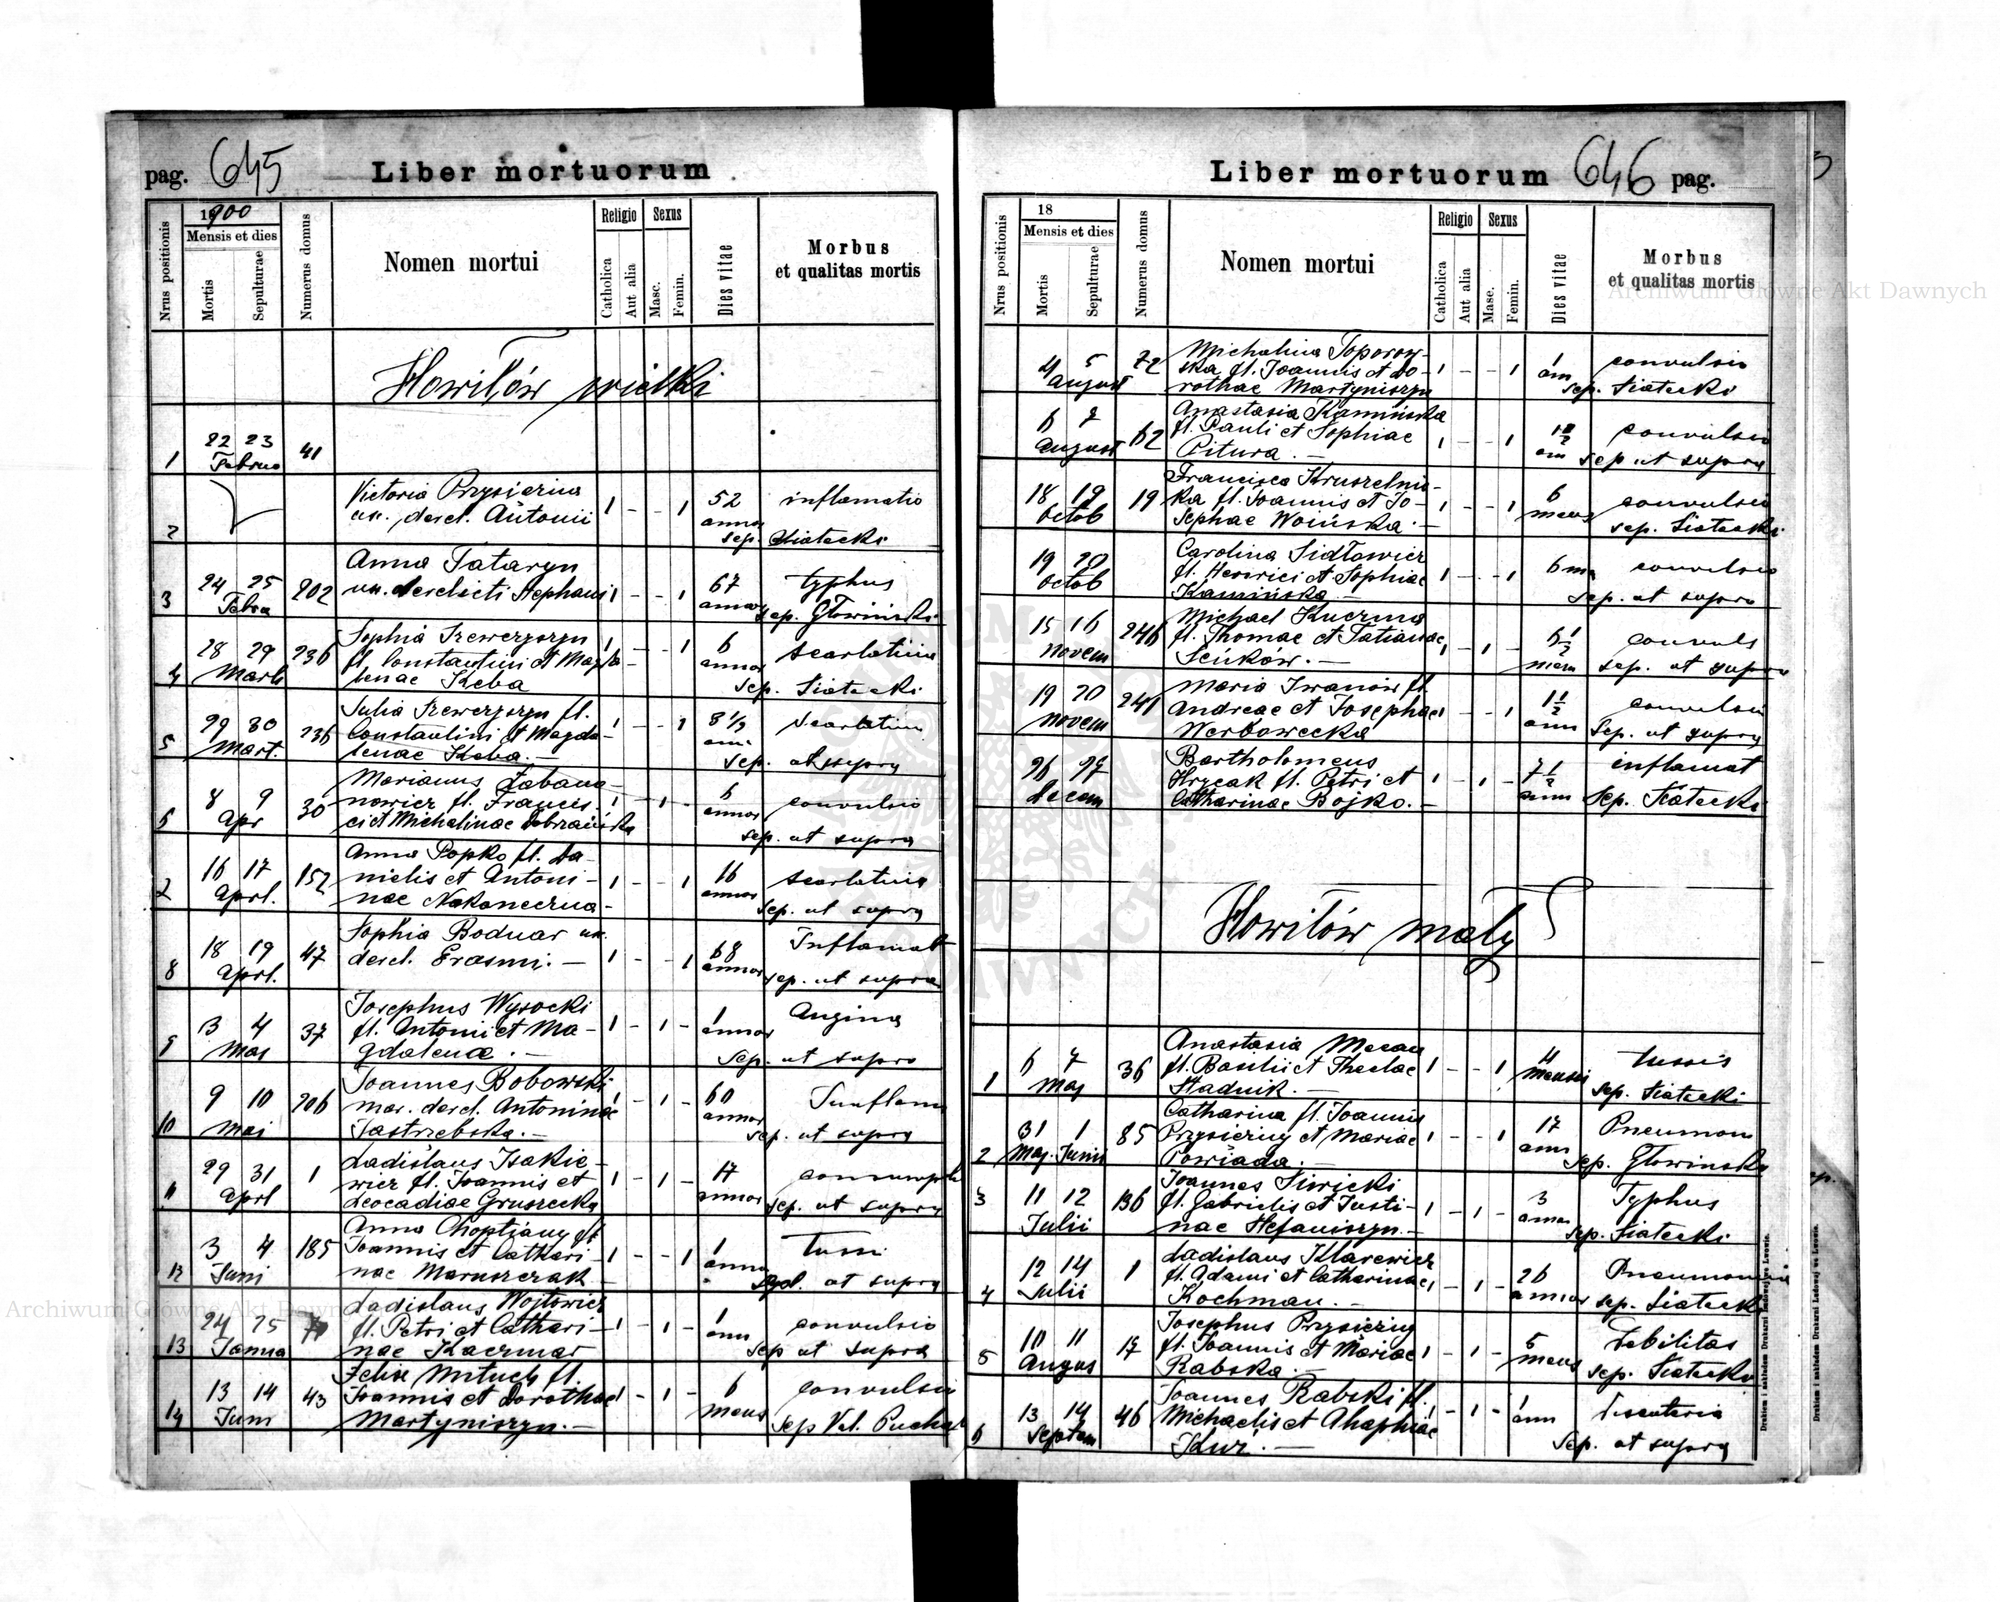 pag. 645 Liber mortuorum
1900
Mensis et dies
Nrus positionis
Mortis
Sepulturae
Numerus domus
Nomen mortui
Religio
Catholica
Aut alia
Sexus
Masc.
Femin.
Dies vitae
Morbus
et qualitas mortis
Howiłów wielki
1 22 23 41
2 Victoria Przysiezna 1 - - 1 52 inflamatio
derel. Antonii annor
sep. Siatecki
3 24 25 202 Anna Tataryn 1 - - 1 67 typhus
derelicti Stephani annor sep. Głowiński
4 28 29 236 Sophia 1 - - 1 6 scarlatina
Marti fl. Constantini et Magda- annor
lenae Keba sep. Siatecki
5 29 30 236 Julia fl. 1 - - 1 8 1/2
Mart. Constantini et Magda-
lenae Keba. — sep. ut supra
8 9 30 Marianus 1 - 1 - 6 convulsio
Apr fl. Francis- annor
ci et Michalinae sep. ut supra
16 17 152 Anna Popko fl. Da- 1 - - 1 16 scarlatina
Aprl. nielis et Antoni- annor
nae sep. ut supra
8 18 19 47 Sophia Bodnar 1 - - 1 68 Inflamat
Aprl. derel. Erasmi. — annor sep. ut supra
9 3 4 37 Josephus Wysocki 1 - 1 - 1 Angina
Maj fl. Antonii et Ma- annor
gdalenae. — sep. ut supra
10 9 10 206 Joannes Bobowski 1 - 1 - 60
Mai mar. derel. Antoninae annor
Jastrzebska. — sep. ut supra
11 29 31 1 Ladislaus Isakie- 1 - 1 - 17
Aprl wicz fl. Joannis et annor
Leocadiae Gruszecka sep. ut supra
12 3 4 185 Anna fl. 1 - - 1 1 tussi
Juni Joannis et Cathari-
nae Maruszczak ut supra
13 24 25 Ladislaus Wojtowicz 1 - 1 - 1 convulsio
fl. Petri et Cathari- ann
nae Kaczmar sep ut supra
14 13 14 43 Felix fl. 1 - 1 - 6 convulsio
Juni Joannis et Dorotheae mens
Martyniszyn. — sep Val.
Liber mortuorum 646 pag.
18
Mensis et dies
Nrus positionis
Mortis
Sepulturae
Numerus domus
Nomen mortui
Religio
Catholica
Aut alia
Sexus
Masc.
Femin.
Dies vitae
Morbus
et qualitas mortis
4 5 72 Michalina Toporow- 1 - - 1 1 convulsio
August ska fl. Joannis et Do- ann
rotheae Martyniszyn sep. Siatecki
6 7 62 Anastasia Kamińska 1 - - 1 convulsio
August fl. Pauli et Sophiae
Pitura. — sep ut supra
18 19 19 Francisca Kruszelnic- 1 - - 1 6 convulsio
Octob ka fl. Joannis et Jo- mens
sephae Woińska. — sep. Siatecki
19 20 Carolina Sidłowicz 1 - - 1 6 convulsio
Octob fl. Henrici et Sophiae
Kamińska — sep. ut supra
15 16 246 Michael Kuczma 1 - 1 - 6 1/2 convuls
Novem fl. Thomae et Tatianae
Seńków. — sep. ut supra
19 20 241 Maria Iwanów fl. 1 - - 1 1 1/2 convulsio
Novem Andreae et Josephae ann
Werbowecka sep. ut supra
26 27 Bartholomeus 1 - 1 - 7 1/2 inflamat
Decem Hrycak fl. Petri et ann
Catharinae Bojko. — sep. Siatecki
Howiłów mały
1 6 7 36 Anastasia 1 - - 1 4 tussis
Maj fl. Basilii et Theclae menses
Stadnik. — sep. Siatecki
2 31 1 85 Catharina fl. Joannis 1 - - 1 17
Maj. Juni Przysiezny et Mariae ann
Powiada. — sep. Głowiński
3 11 12 136 Joannes Siwicki 1 - 1 - 3 Typhus
Julii fl. Gabrielis et Justi-
nae Stefaniszyn. — sep. Siatecki
4 12 14 1 Ladislaus 1 - 1 - 26 Pneumonia
Julii fl. Adami et Catharinae annor
Kochman. — sep. Siatecki
5 10 11 17 Josephus Przysiezny 1 - 1 - 5 Debilitas
Augus fl. Joannis et Mariae mens
Rabska. — sep. Siatecki
6 13 14 46 Joannes Rabski fl. 1 - 1 - 1
Septem Michaelis et Ahaphiae ann
sep. ut supra
Drukiem i nakładem Drukarni Ludowej we Lwowie.
Drukiem i nakładem Drukarni Ludowej we Lwowie.
Archiwum Główne Akt Dawnych
Archiwum Główne Akt Dawnych